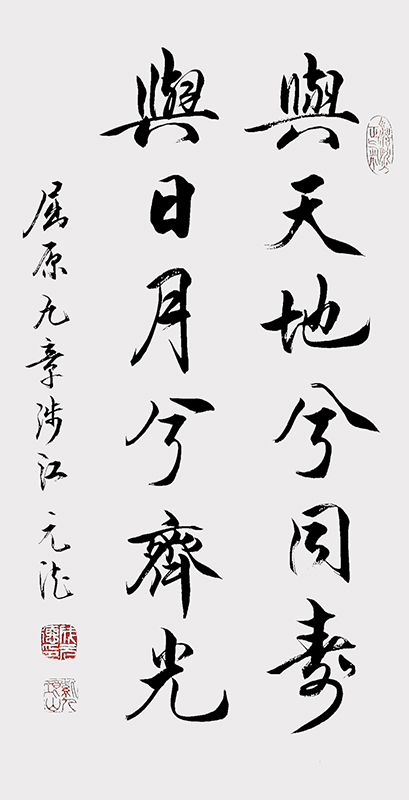 與天地兮同壽
與日月兮齊光
屈原九章涉江 元